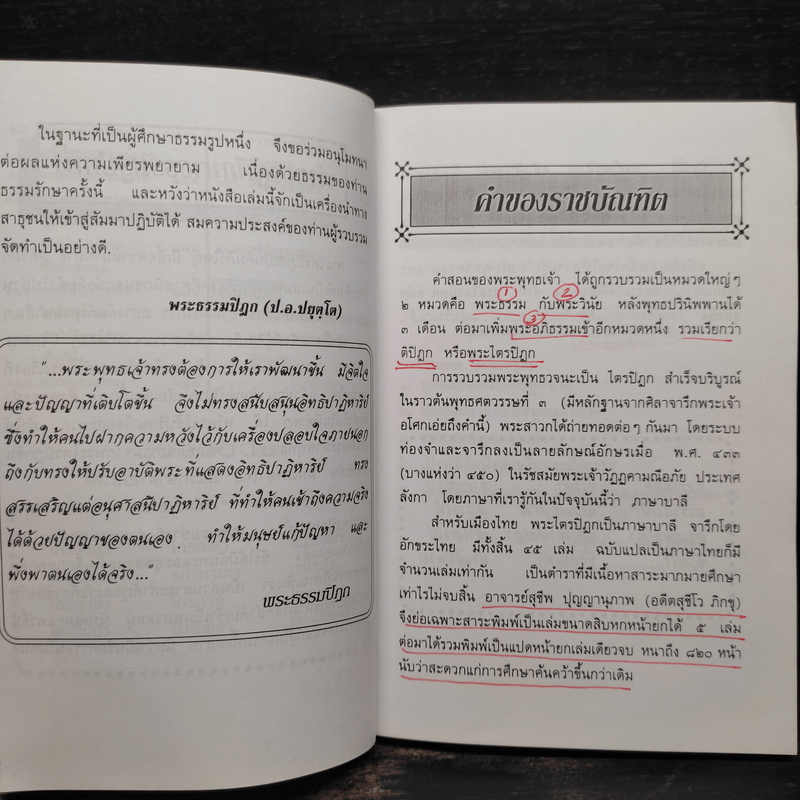 ในฐานะที่เป็นผู้ศึกษาธรรมรูปหนึ่ง จึงขอร่วมอนุโมทนา
ต่อผลแห่งความเพียรพยายาม เนื่องด้วยธรรมของท่าน
ธรรมรักษาครั้งนี้ และหวังว่าหนังสือเล่มนี้จักเป็นเครื่องนำทาง
สาธุชนให้เข้าสู่สัมมาปฏิบัติได้ สมความประสงค์ของท่านผู้รวบรวม
จัดทำเป็นอย่างดี.
พระธรรมปิฎก (ป.อ.ปยุตฺโต)
"...พระพุทธเจ้าทรงต้องการให้เราพัฒนาขึ้น มีจิตใจ
และปัญญาที่เติบโตขึ้น จึงไม่ทรงสนับสนุนอิทธิปาฏิหาริย์
ซึ่งทำให้คนไปฝากความหวังไว้กับเครื่องปลอบใจภายนอก
ถึงกับทรงให้ปรับอาบัติพระที่แสดงอิทธิปาฏิหาริย์ ทรง
สรรเสริญแต่อนุศาสนีปาฏิหาริย์ ที่ทำให้คนเข้าถึงความจริง
ได้ด้วยปัญญาของตนเอง ทำให้มนุษย์แก้ปัญหา และ
พึ่งพาตนเองได้จริง..."
พระธรรมปิฎก
คำของราชบัณฑิต
คำสอนของพระพุทธเจ้า ได้ถูกรวบรวมเป็นหมวดใหญ่ๆ
1 2
๒ หมวดคือ พระธรรม กับพระวินัย หลังพุทธปรินิพพานได้
3
๓ เดือน ต่อมาเพิ่มพระอภิธรรมเข้าอีกหมวดหนึ่ง รวมเรียกว่า
ติปิฎก หรือพระไตรปิฎก
การรวบรวมพระพุทธวจนะเป็น ไตรปิฎก สำเร็จบริบูรณ์
ในราวต้นพุทธศตวรรษที่ ๓ (มีหลักฐานจากศิลาจารึกพระเจ้า
อโศกเอ่ยถึงคำนี้) พระสาวกได้ถ่ายทอดต่อๆ กันมา โดยระบบ
ท่องจำและจารึกลงเป็นลายลักษณ์อักษรเมื่อ พ.ศ. ๔๓๓
(บางแห่งว่า ๔๕๐) ในรัชสมัยพระเจ้าวัฏฏคามณีอภัย ประเทศ
ลังกา โดยภาษาที่เรารู้กันในปัจจุบันนี้ว่า ภาษาบาลี
สำหรับเมืองไทย พระไตรปิฎกเป็นภาษาบาลี จารึกโดย
อักขระไทย มีทั้งสิ้น ๔๕ เล่ม ฉบับแปลเป็นภาษาไทยก็มี
จำนวนเล่มเท่ากัน เป็นตำราที่มีเนื้อหาสาระมากมายศึกษา
เท่าไรไม่จบสิ้น อาจารย์สุชีพ ปุญญานุภาพ (อดีตสุชีโว ภิกขุ)
จึงย่อเฉพาะสาระพิมพ์เป็นเล่มขนาดสิบหกหน้ายกได้ ๕ เล่ม
ต่อมาได้รวมพิมพ์เป็นแปดหน้ายกเล่มเดียวจบ หนาถึง ๘๒๐ หน้า
นับว่าสะดวกแก่การศึกษาค้นคว้าขึ้นกว่าเดิม